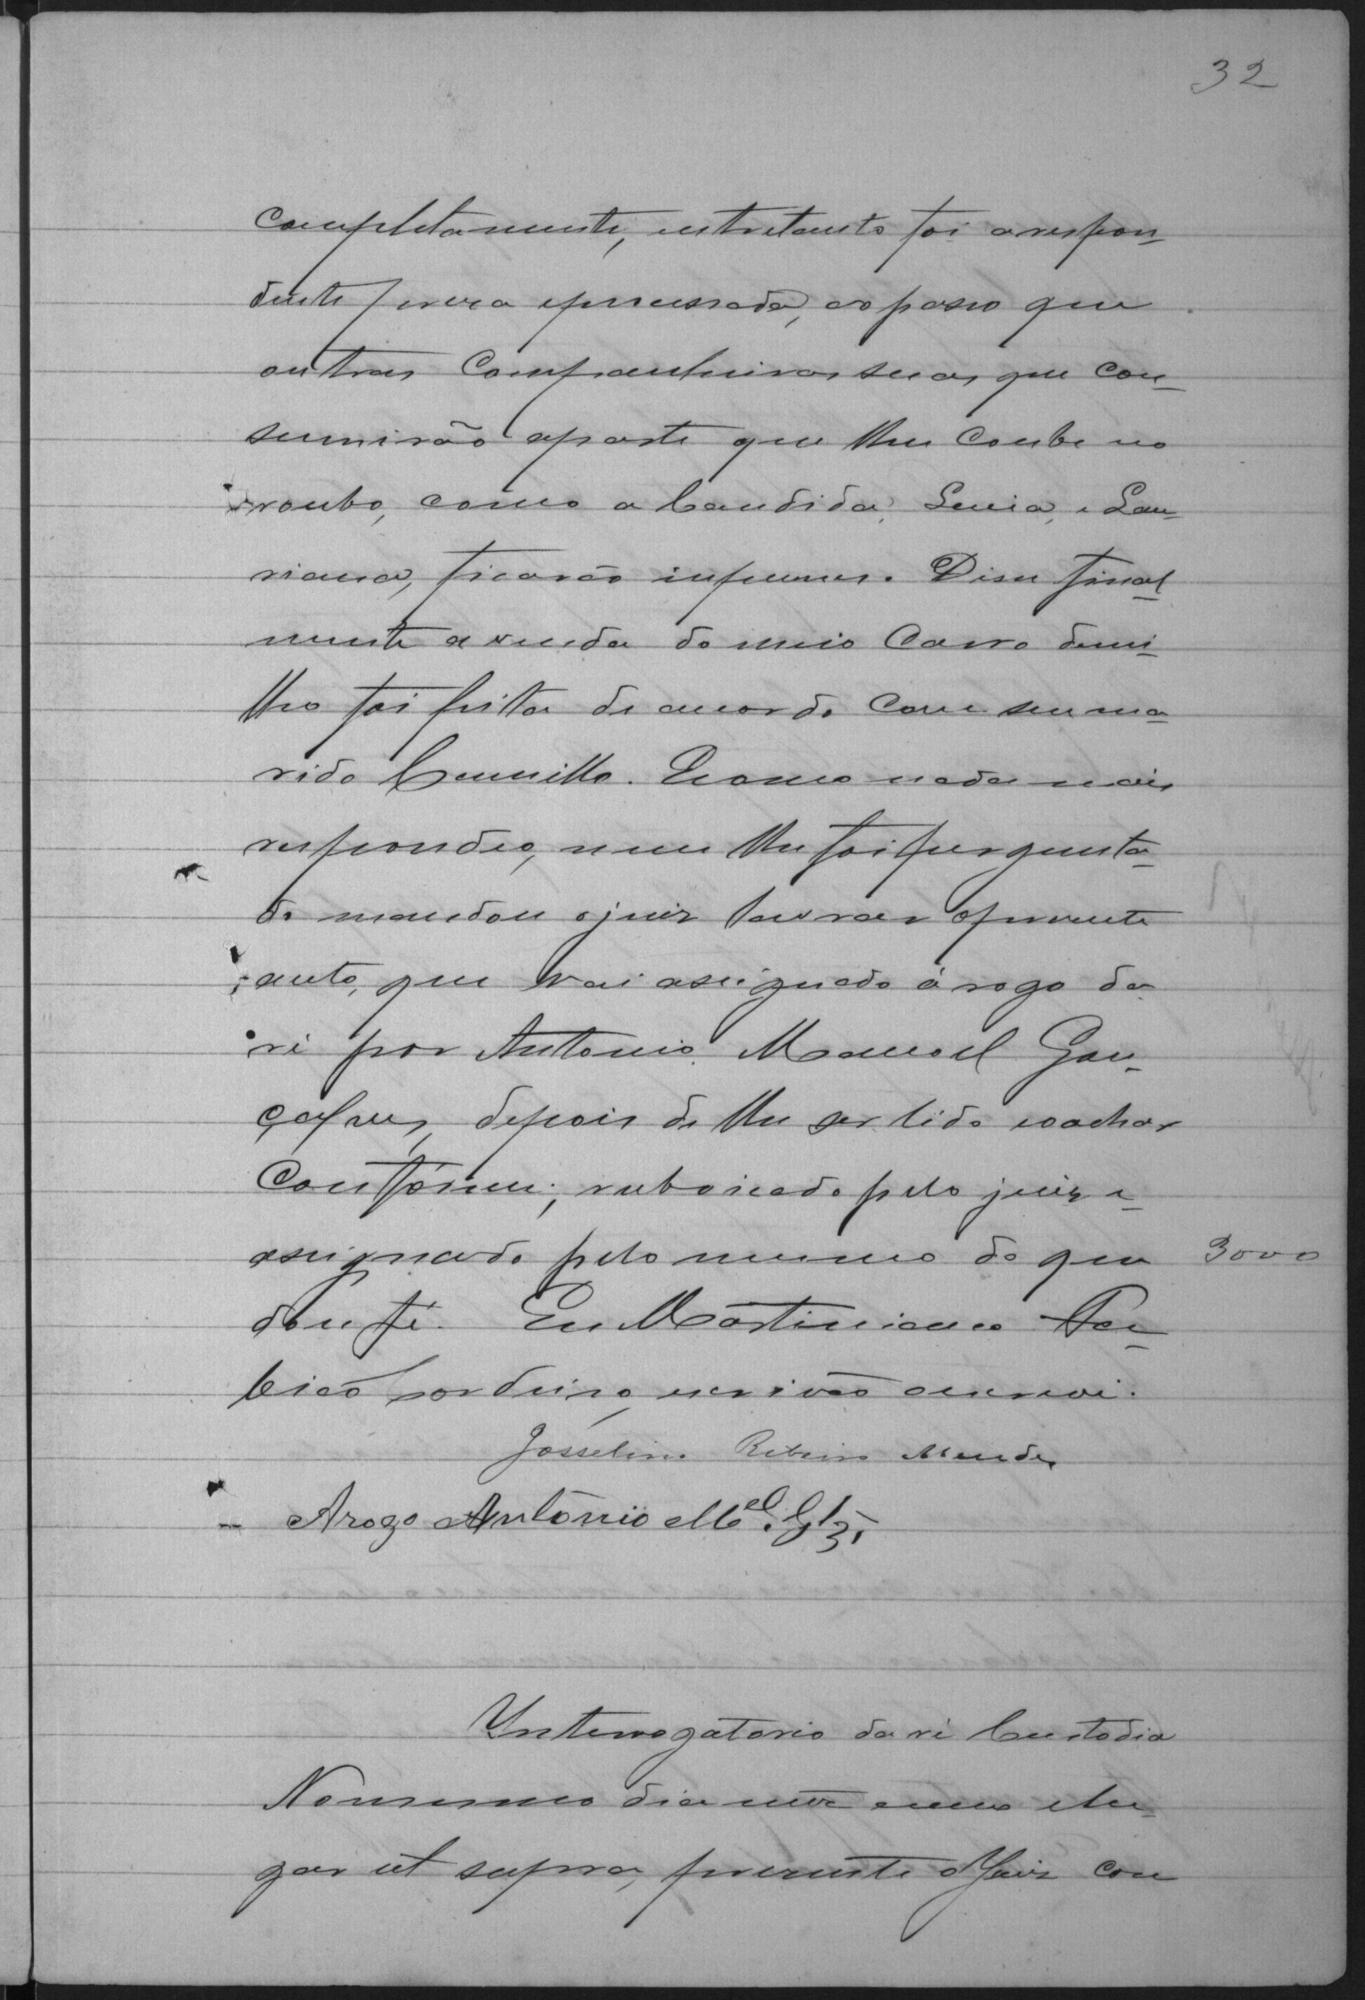 32
completamente, entretanto foi a respon-
dente presa e processada, ao passo que
outras companheiras suas que con-
sumirão a parte que lhe coube no
roubo, como a Candida, Luiza, e Lau-
riana, ficarão impunes. Disse final-
mente a venda do meio carro de mi-
lho foi feita de acordo com seu ma-
rido Camillo. E como nada mais
respondeo, nem lhe foi pergunta-
do mandou o juiz lavrar o presente
auto, que vai assignado á rogo da
ré por Antonio Manoel Gon-
çalves, depois de lhe ser lido e achar
conforme; rubricado pelo juiz e
assignado pelo mesmo do que
3000
dou fé. Eu Martiniano
escrivão o escrevi.
Josselino Ribeiro Mendes
Arogo Antonio Mel. Glz.
Interrogatorio da ré Custodia
No mesmo dia mez anno e lu-
gar ut supra, presente o Juiz com